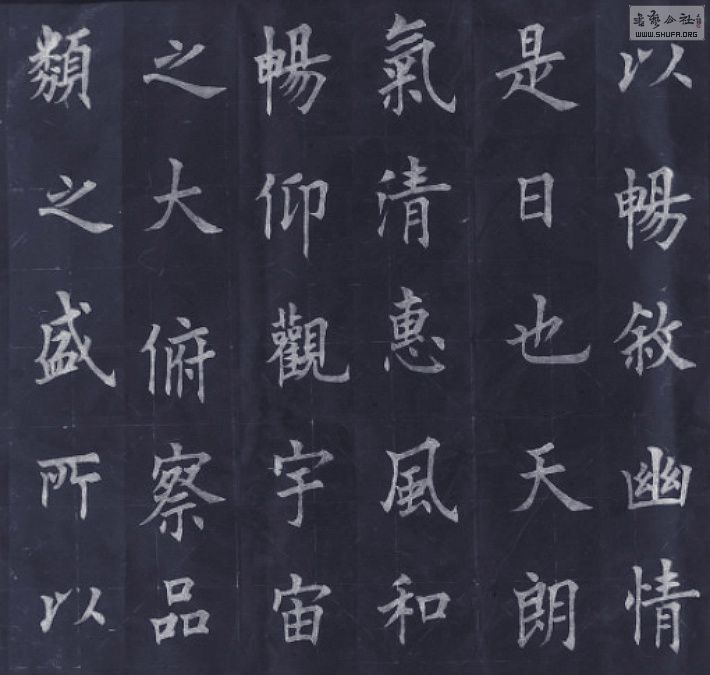 以暢敘幽情
是日也天朗
氣清惠風和
暢仰觀宇宙
之大俯察品
類之盛所以
WWW.SHUFA.ORG